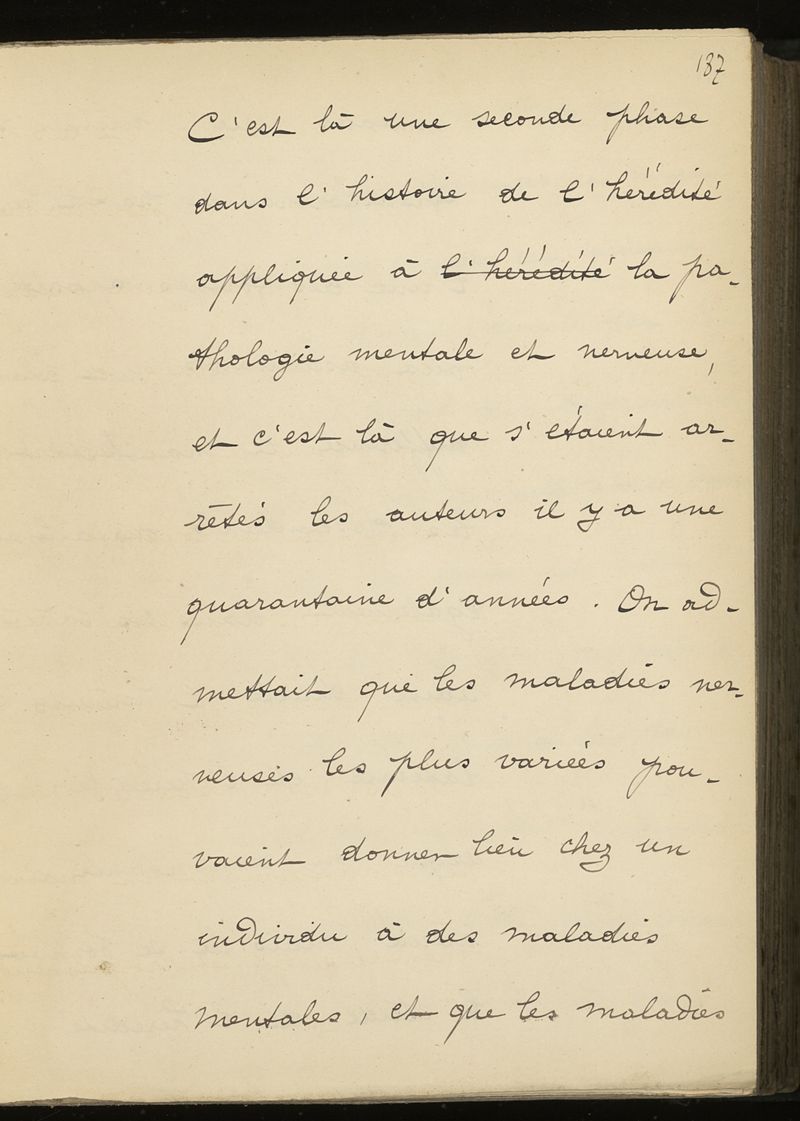 187
C'est là une seconde phase
dans l'histoire de l'hérédité
appliquée à l'hérédité la pa-
thologie mentale et nerveuse,
et c'est là que s'étaient ar-
rêtés les auteurs il y a une
quarantaine d'années. On ad-
mettait que les maladies ner-
veuses les plus variées pou-
vaient donner lieu chez un
individu à des maladies
mentales, et que les maladies